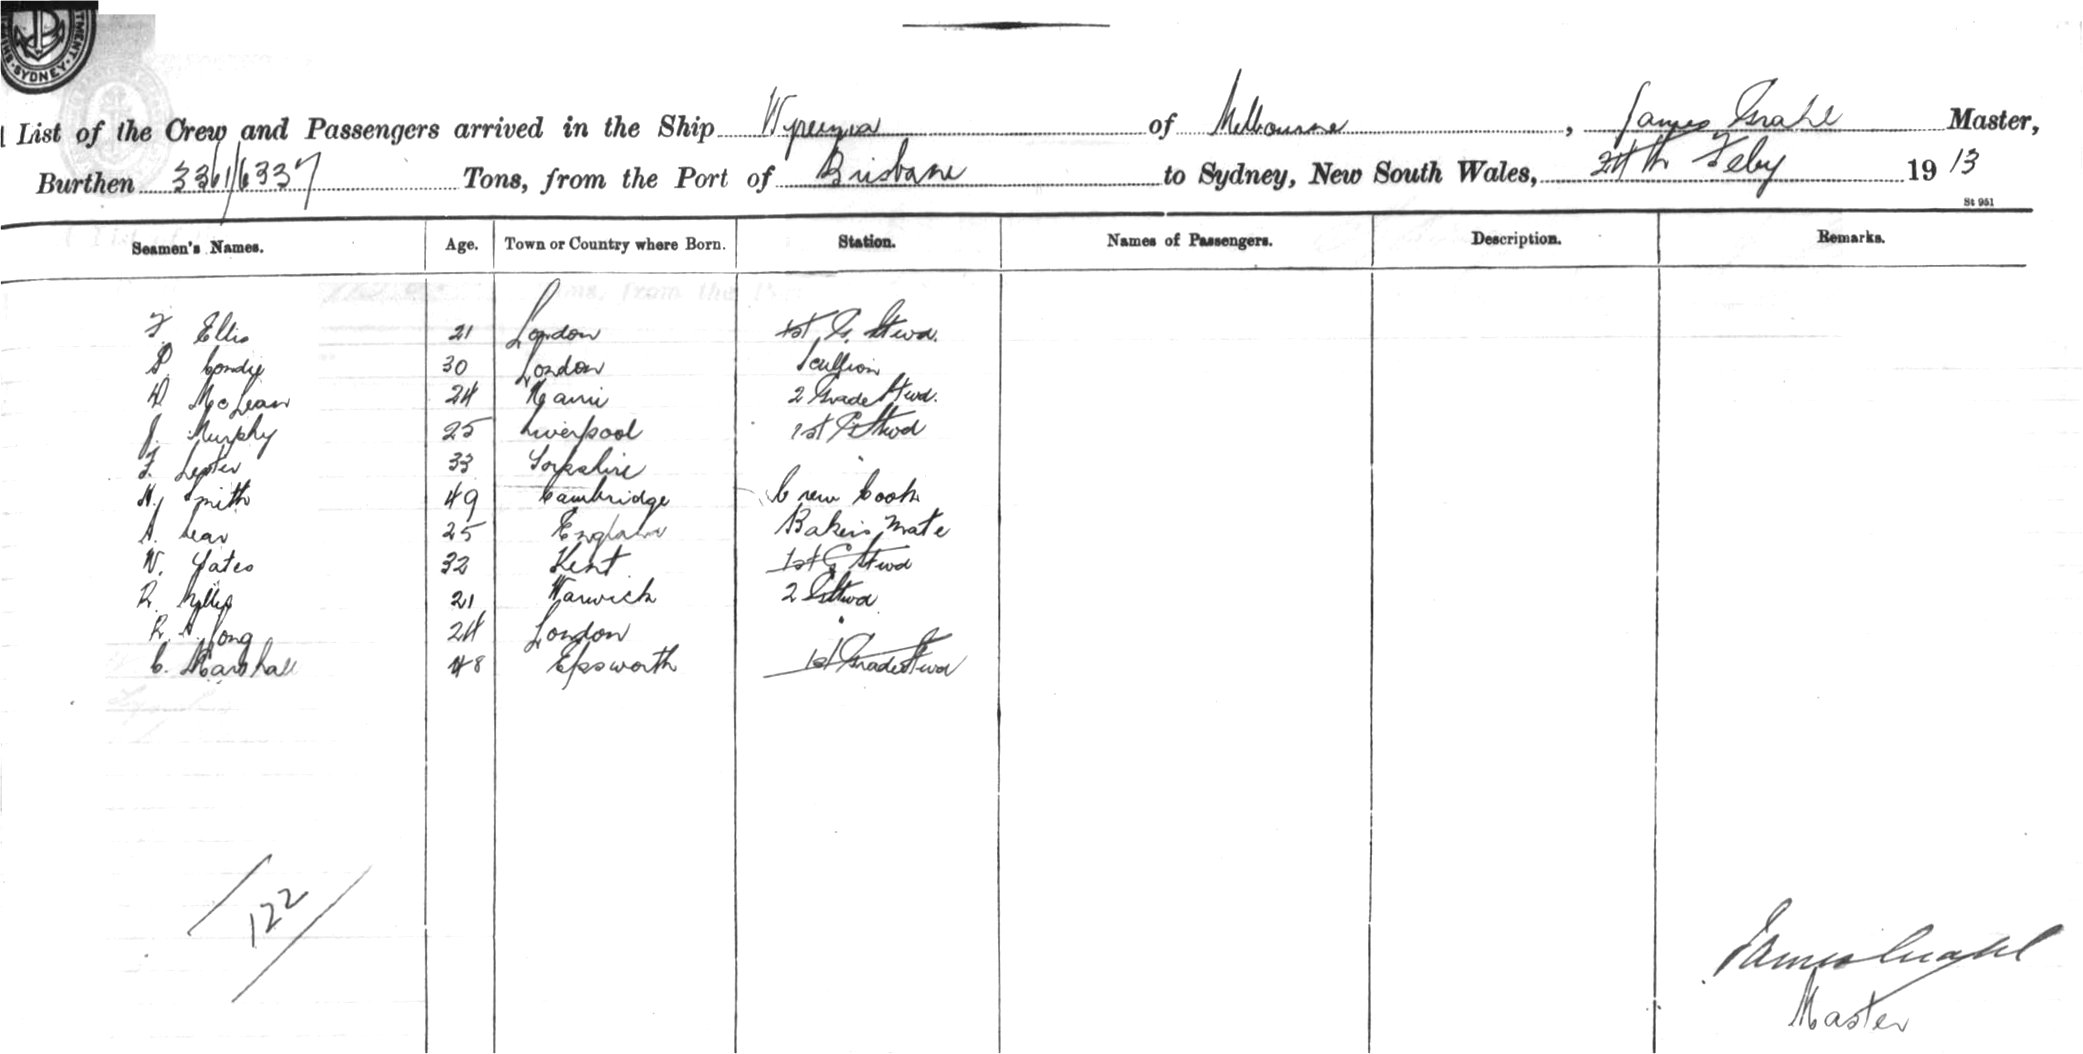 SYDNEY
List of the Crew and Passengers arrived in the Ship Wyreema of Melbourne, James Grahl Master,
Burthen 3361/6337 Tons, from the Port of Brisbane to Sydney, New South Wales, 24th Feby 1913
St 951
Seamen's Names. Age. Town or Country where Born. Station. Names of Passengers. Description. Remarks.
F. Ellis 21 London 1st G. Stwd.
Condy 30 London Scullion
McLean 24 2 Grade Stwd.
J. Murphy 25 Liverpool 1st G Stwd
F. Lester 33 Yorkshire
H. Smith 49 Cambridge Crew Cook
A. Lear 25 England Bakers Mate
W. Yates 32 Kent 1st G Stwd
R. 21 Warwick 2 G Stwd
R. A. Long 24 London
C. Marshall 48 Epsworth 1st Grade Stwd
122
James Grahl
Master